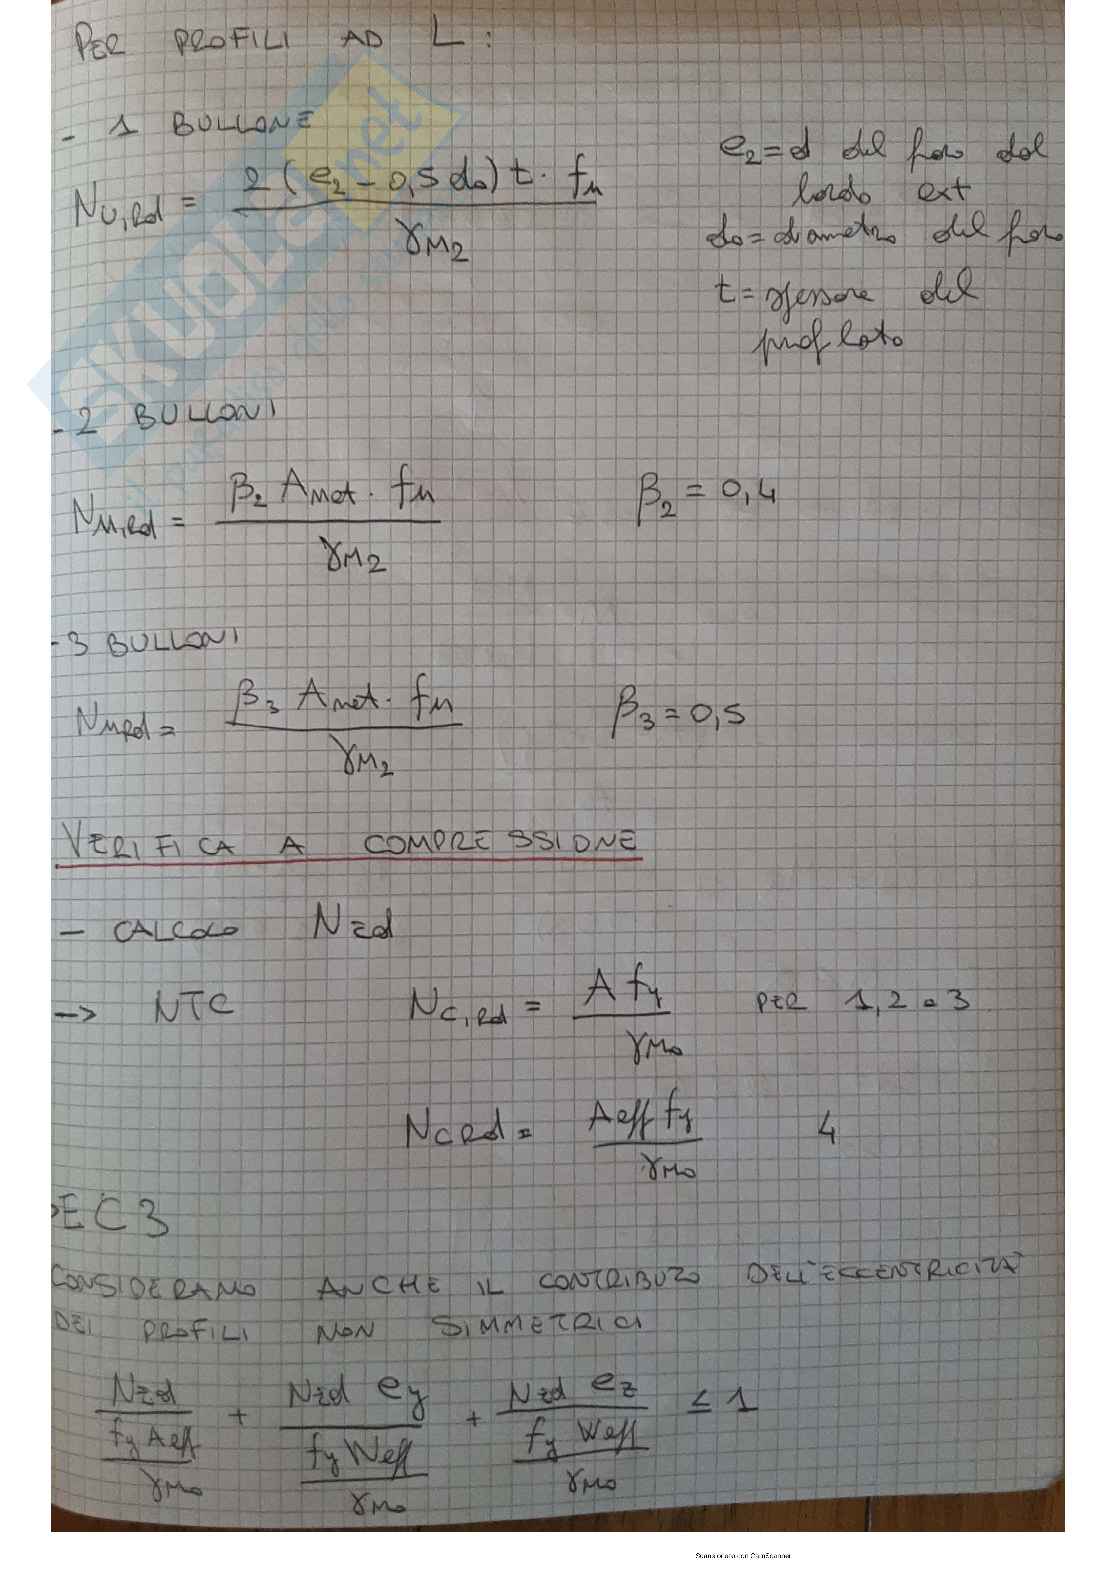 PER PROFILI AD L:
- 1 BULLONE
Nu,Rd = 2 (e2 - 0,5 d0) t · fu / γM2
e2 = d del foro dal
bordo ext
d0 = diametro del foro
t = spessore del
profilato
- 2 BULLONI
Nu,Rd = β2 Anet · fu / γM2
β2 = 0,4
- 3 BULLONI
Nu,Rd = β3 Anet · fu / γM2
β3 = 0,5
VERIFICA A COMPRESSIONE
- CALCOLO NEd
-> NTC Nc,Rd = A fy / γM0 PER 1,2 o 3
NcRd = Aeff fy / γM0 4
> EC3
CONSIDERAMO ANCHE IL CONTRIBUTO DELL'ECCENTRICITÀ
DEI PROFILI NON SIMMETRICI
NEd / (fy Aeff / γM0) + NEd ey / (fy Weff / γM0) + NEd ez / (fy Weff / γM0) ≤ 1
SKUOLA.net